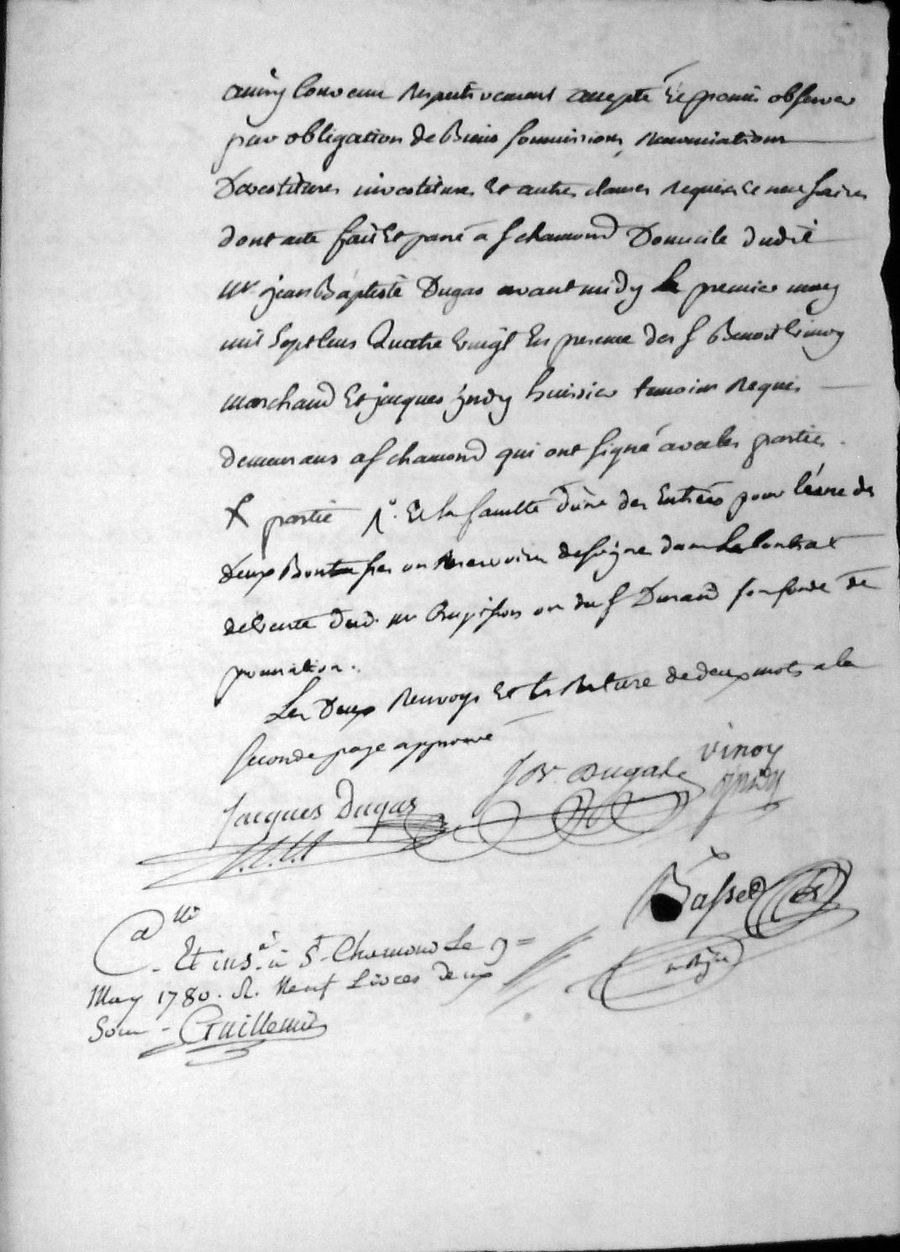 ainsy convenu respectivement accepté Et promis observer
par obligation de Biens soumissions, renonciations
Devestitures investitures Et autres clauses requises
dont acte fait Et passé a St chamond Domicile dudit
mr jean Baptiste Dugas avant midy Le premier may
mil sept Cens Quatre vingt En presence des sr Benoit vinoy
marchand Et jacques huissier temoins Requis
demeurans a St chamond qui ont signé avec les parties.
X partie Et la faculté d'une des Entrées pour
deux ou reservoirs designés dans Le Contrat
de vente dud. mr ou du sr Durand son fondé de
procuration.
Les Deux Renvoys Et la Rature de deux mots a la
seconde page approuvé
vinoy
Jn Bte Dugas
Jacques Dugas
Basset
nore
Cllé
Et ins. à St Chamond Le 9
May 1780. R. Neuf Livres deux
Sous - Guillemin